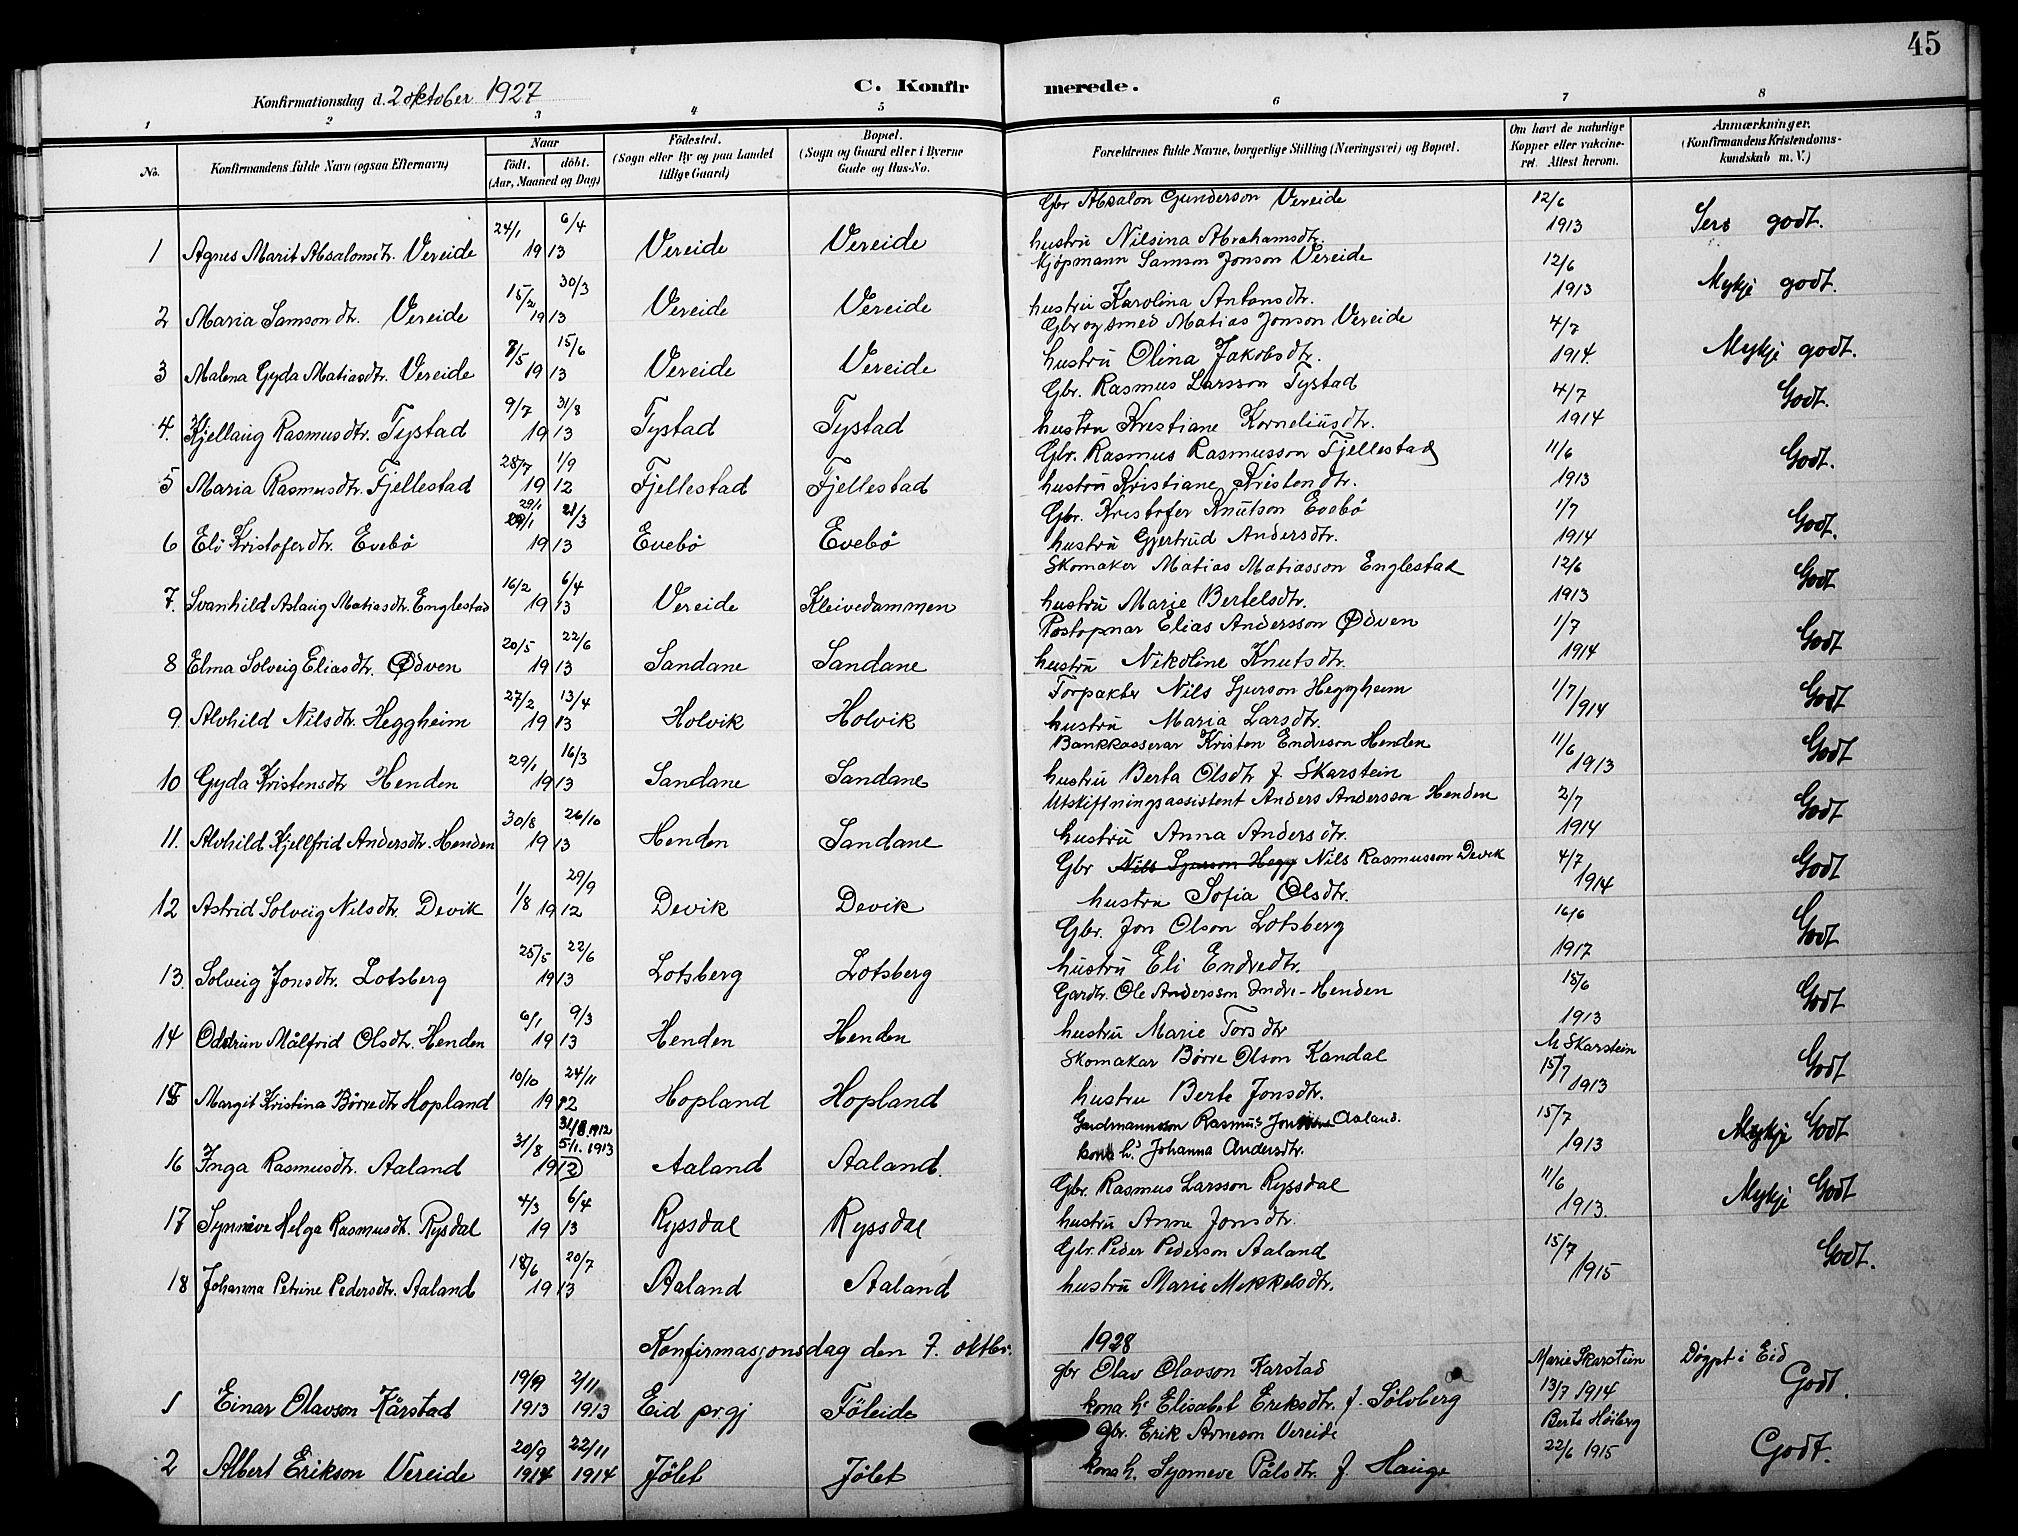 45
Konfirmationsdag d. 2 oktober 1927
C. Konfirmerede.
1 2 3 4 5 6 7 8
No. Konfirmandens fulde Navn (ogsaa Efternavn) Naar födt. döbt. (Aar, Maaned og Dag) Födested. (Sogn eller By og paa Landet tillige Gaard) Bopæl. (Sogn og Gaard eller i Byerne Gade og Hus-No. Forældrenes fulde Navne, borgerlige Stilling (Næringsvei) og Bopæl. Om havt de naturlige Kopper eller vakcineret. Attest herom. Anmærkninger. (Konfirmandens Kristendomskundskab m. V.)
Gbr Absalon Gunderson Vereide
1 Agnes Marit Absalonsdtr. Vereide 24/1 6/4 1913 Vereide Vereide hustru Nilsina Abrahamsdtr. 12/6 1913 Sers godt.
Kjøpmann Samson Jonson Vereide
2 Maria Samsondtr. Vereide 15/2 30/3 1913 Vereide Vereide hustru Karolina Antonsdtr. 12/6 1913 Mykje godt.
Gbr og smed Matias Jonson Vereide
3 Malena Gyda Matiasdtr. Vereide 7/5 15/6 1913 Vereide Vereide hustru Olina Jakobsdtr. 4/7 1914 Mykje godt.
Gbr. Rasmus Larsson Tystad
4. Kjellaug Rasmusdtr. Tystad 9/7 31/8 1913 Tystad Tystad hustru Kristiane Korneliusdtr. 4/7 1914 Godt.
Gbr. Rasmus Rasmusson Fjellestad
5 Maria Rasmusdtr. Fjellestad 28/7 1/9 1912 Fjellestad Fjellestad hustru Kristiane Kristendtr. 11/6 1913 Godt.
Gbr. Kristofer Knutson Evebø
6 Eli Kristoferdtr. Evebø 29/1 21/3 1913 Evebø Evebø hustru Gjertrud Andersdtr. 1/7 1914 Godt.
Skomaker Matias Matiasson Englestad
7. Svanhild Aslaug Matiasdtr. Englestad 16/2 6/4 1913 Vereide Kleivedammen hustru Marie Bertelsdtr. 12/6 1913 Godt
Postopnar Elias Andersson Ødven
8 Elma Solveig Eliasdtr. Ødven 20/5 22/6 1913 Sandane Sandane hustru Nikoline Knutsdtr. 1/7 1914 Godt
Torpakter Nils Sjurson Heggheim
9. Alvhild Nilsdtr. Heggheim 27/2 13/4 1913 Holvik Holvik hustru Maria Larsdtr. 1/7 1914 Godt
Bankkasserar Kristen Endreson Henden
10 Gyda Kristensdtr Henden 29/1 16/3 1913 Sandane Sandane hustru Berta Olsdtr f. Skarstein 11/6 1913 Godt
Utskiftningsassistent Anders Andersson Henden
11. Alvhild Kjellfrid Andersdtr. Henden 30/8 26/10 1913 Henden Sandane hustru Anna Andersdtr. 2/7 1914 Godt
Gbr Nils Sjurson Hegg Nils Rasmusson Devik
12 Astrid Solveig Nilsdtr. Devik 1/8 29/9 1912 Devik Devik hustru Sofia Olsdtr. 4/7 1914 Godt
Gbr. Jon Olson Lotsberg
13. Solveig Jonsdtr. Lotsberg 25/5 22/6 1913 Lotsberg Lotsberg hustru Eli Endredtr. 16/6 1917 Godt
Gardtr. Ole Andersson Indre-Henden
14 Oddrun Målfrid Olsdtr. Henden 6/1 9/3 1913 Henden Henden hustru Marie Torsdtr 15/6 1913 Godt
Skomakar Børre Olson Kandal
15 Margit Kristina Børredtr Hopland 10/10 24/11 1912 Hopland Hopland hustru Berte Jonsdtr. M Skarstein 15/7 1913 Godt
Gardmannsson Rasmus Aaland.
16 Inga Rasmusdtr. Aaland 31/8 1912 31/8. 1912 5/1. 1913 Aaland Aaland. kona h.s Johanna Andersdtr. 15/7 1913 Mykje Godt
Gbr. Rasmus Larsson Ryssdal
17 Synnøve Helga Rasmusdtr. Rysdal 4/3 6/4 1913 Ryssdal Ryssdal hustru Anne Jonsdtr. 11/6 1913. Mykje Godt
Gbr. Peder Pederson Aaland
18 Johanna Petrine Pedersdtr. Aaland 18/6 20/7 1913 Aaland Aaland hustru Marie Mikkelsdtr. 15/7 1915 Godt.
Konfirmasjonsdag den 7. oktbr. 1928
gbr Olav Olavson Kårstad Marie Skarstein Døypt i Eid
1 Einar Olavson Kårstad 19/9 1913 2/11 1913 Eid prgj Föleide kona h. Elisabet Eriksdtr. f. Sølvberg 13/7 1914 Godt.
gbr. Erik Arneson Vereide Berta Høiberg
2 Albert Erikson Vereide 20/9 1914 22/11 1914 Jölet Jölet kona h. Synneve Pålsdtr. f. Hauge 22/6 1915 Godt.